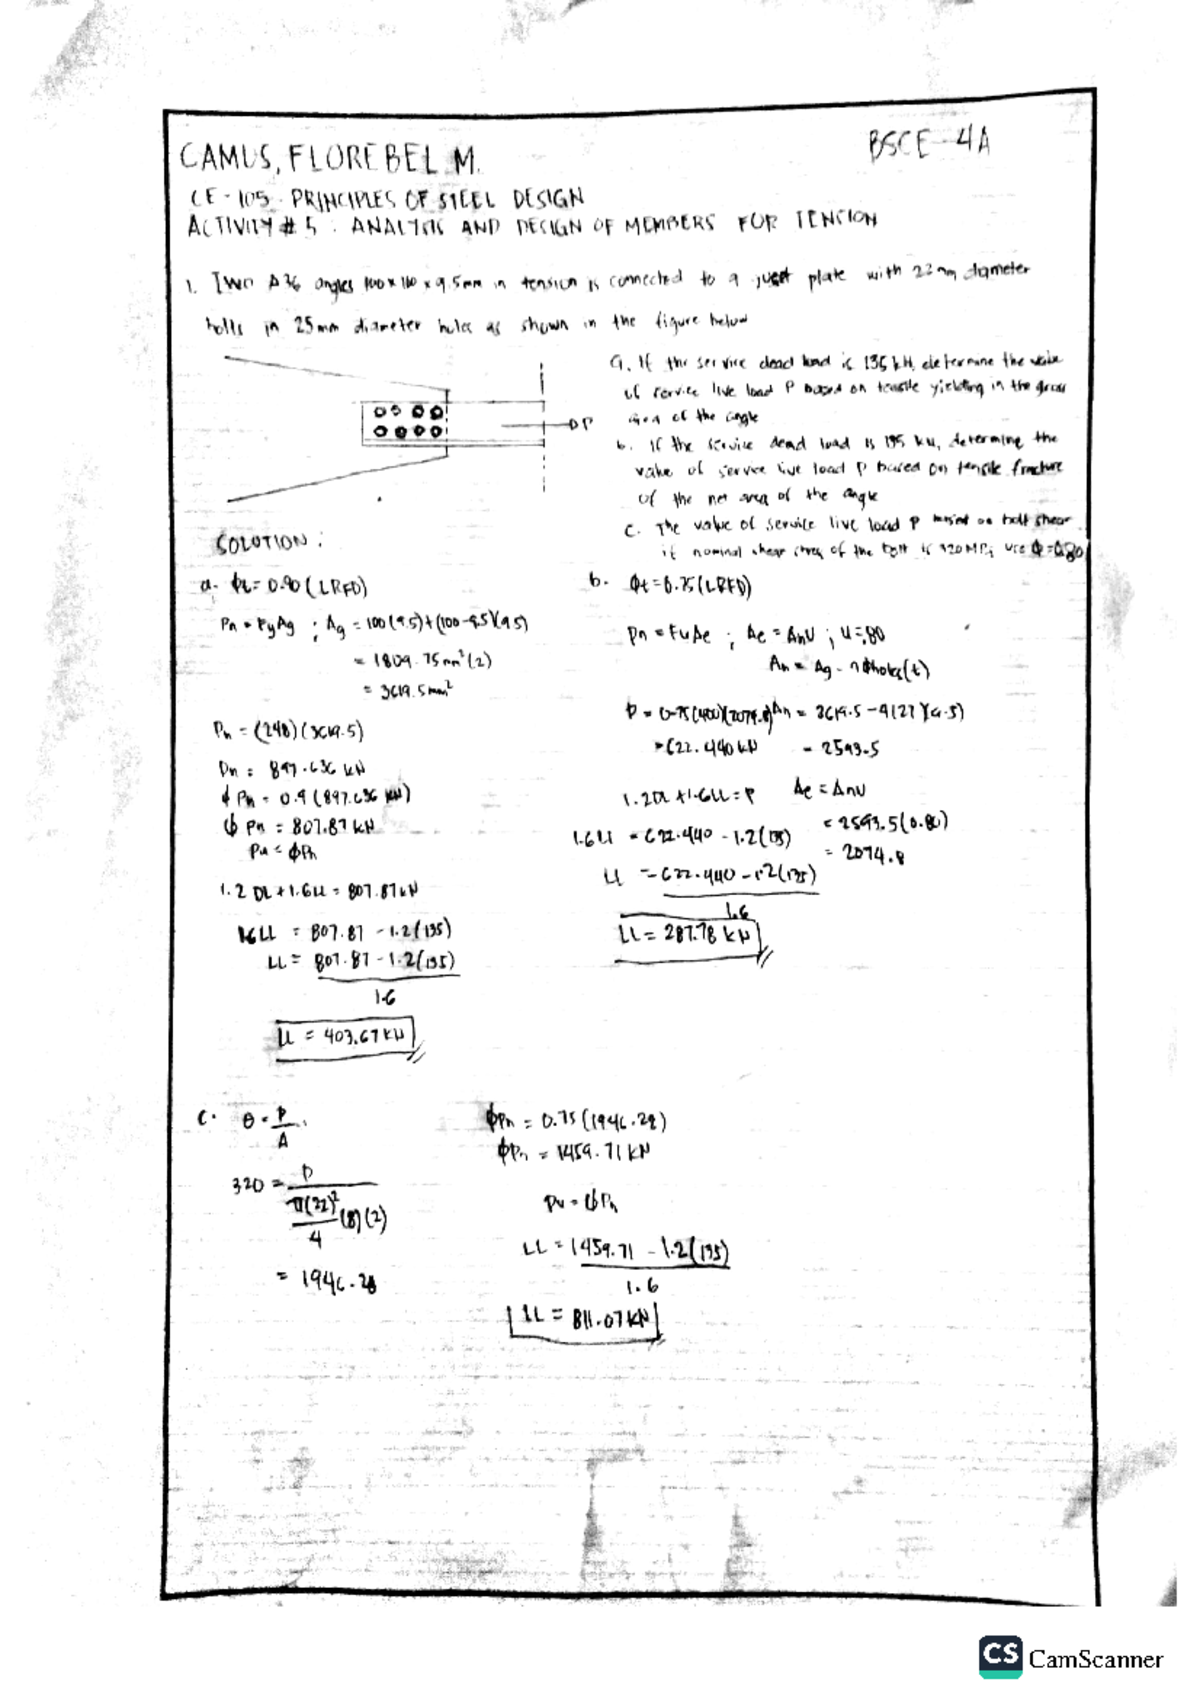 CAMUS, FLOREBEL M.
BSCE-4A
CE-105: PRINCIPLES OF STEEL DESIGN
ACTIVITY # 5 : ANALYSIS AND DESIGN OF MEMBERS FOR TENSION
1. Two A36 angles 100x100x9.5mm in tension is connected to a plate with 22mm diameter
in 25mm diameter holes as shown in the figure below
P
a. If the service dead load is 135 kN, determine the value
of service live load P based on tensile yielding in the gross
area of the angle
b. If the service dead load is 135 kN, determine the
value of service live load P based on tensile fracture
of the net area of the angle
c. The value of service live load P on bolt shear
if nominal shear stress of the bolt is 320 MPa use Φ=
SOLUTION :
a. Φt = 0.90 (LRFD)
Pn = FyAg ; Ag = 100(9.5)+(100-9.5)(9.5)
= 1809.75mm²(2)
= 3619.5mm²
Pn = (248)(3619.5)
Pn = 897.636 kN
ϕ Pn = 0.9 (897.636 kN)
ϕ Pn = 807.87 kN
Pu = ϕPn
1.2 DL + 1.6LL = 807.87kN
1.6LL = 807.87 - 1.2(135)
LL = 807.87 - 1.2(135)
1.6
LL = 403.67 kN
b. Φt = 0.75 (LRFD)
Pn = FuAe ; Ae = AnU ; U = .80
An = Ag - nϕholes(t)
P = 0.75(400)(2074.8) An = 3619.5 - 4(27)(9.5)
= 622.440 kN = 2593.5
1.2DL + 1.6LL = P Ae = AnU
1.6LL = 622.440 - 1.2(135) = 2593.5(0.80)
= 2074.8
LL = 622.440 - 1.2(135)
1.6
LL = 287.78 kN
c. θ = P
A
320 = P
π(22)²
4 (8)(2)
= 1946.28
ϕPn = 0.75 (1946.28)
ϕPn = 1459.71 kN
Pu = ϕPn
LL = 1459.71 - 1.2(135)
1.6
LL = 811.07 kN
CS CamScanner